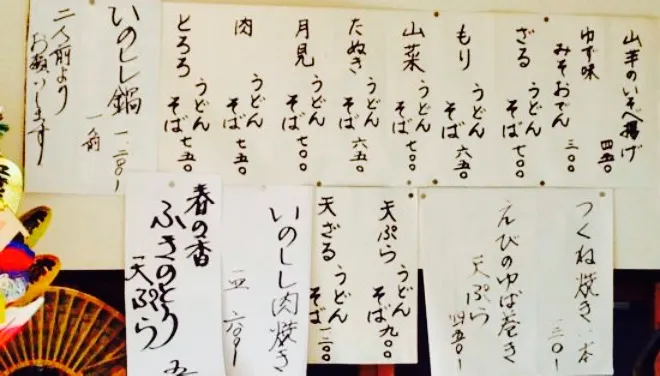 山芋のいそべ揚げ 四五〇
ゆず味
みそおでん 三〇〇
ざる うどん
そば 七〇〇
もり うどん
そば 六五〇
山菜 うどん
そば 七〇〇
たぬき うどん
そば 六五〇
月見 うどん
そば 七〇〇
肉 うどん
そば 七五〇
とろろ うどん
そば 七五〇
いのしし鍋 一、二〇〇
一人前
二人前より
お願いします
つくね焼き 一本
一三〇
えびのゆば巻き
天ぷら 四五〇
天ぷら うどん
そば 九〇〇
天ざる うどん
そば 一二〇〇
いのしし肉焼き
一皿 六〇〇
春の香
ふきのとう
天ぷら